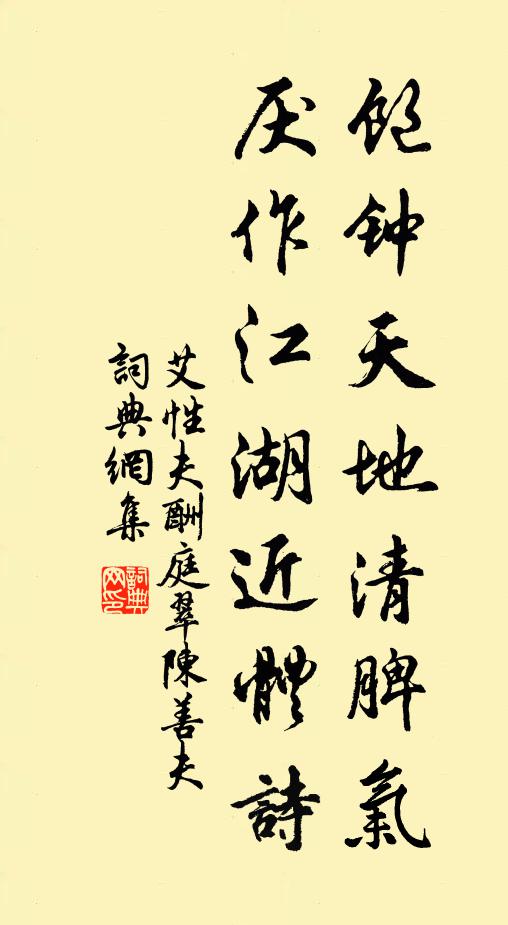 飽钟天地清脾氣
厌作江湖近體詩
艾性夫酬庭翠陳善夫
詞典網集
詞典网印